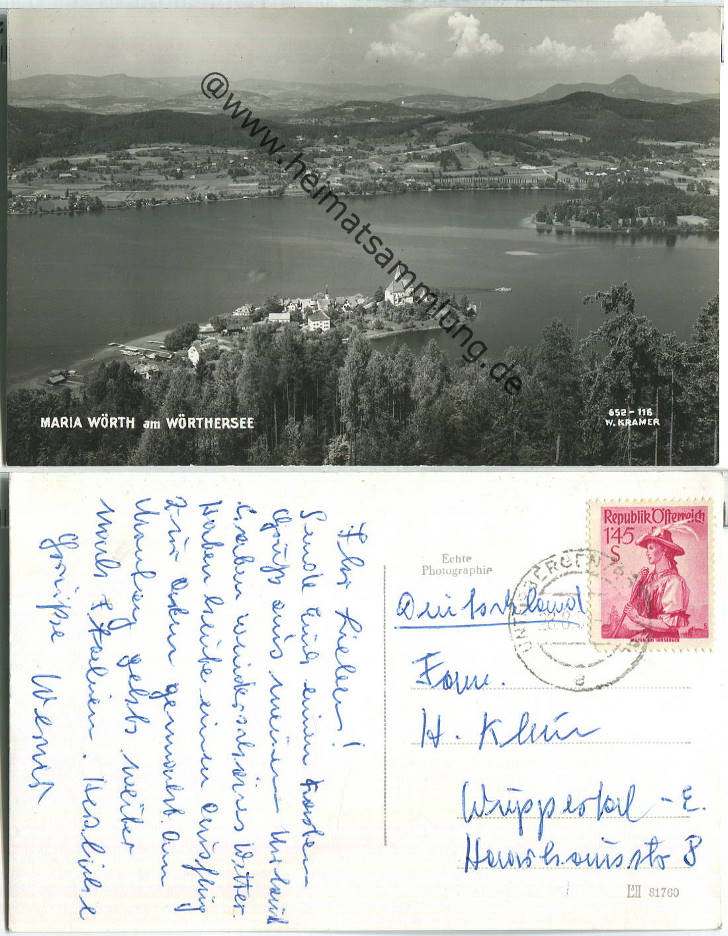 @www.heimatsammlung.de
MARIA WÖRTH am WÖRTHERSEE
652-116
W. KRAMER
Ihr Lieben!
Sende Euch einen Karten-
Gruß aus meinem Urlaub
Haben wunderschönes Wetter.
Haben heute einen Ausflug
zur gemacht. Am
Montag gehts weiter
nach Italien. Herzliche
Grüße Werner
Echte
Photographie
Republik Österreich
1'45
S
UNTERBERGEN
a
Deutschland
Fam.
H. Klür
Wuppertal-E.
Hans
8
81760